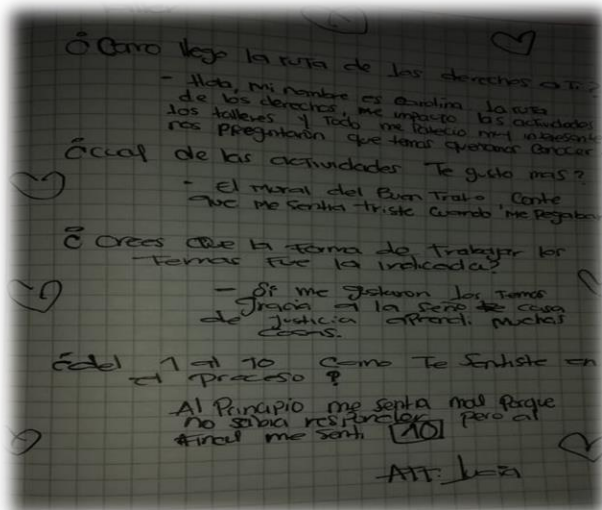 ¿Como llego la ruta de los derechos a Ti?
- Hola, mi nombre es Carolina la ruta
de los derechos, me impacto las actividades
los talleres y Todo me Parecio muy interesante
nos Preguntaron que temas queriamos conocer
¿cual de las actividades Te gusto mas?
- El mural del Buen Trato, Conte
que me sentia triste cuando me Pegaban
¿Crees que la forma de Trabajar los
Temas fue la indicada?
- Si me gustaron los Temas
gracia a la seño de casa
de justicia aprendi muchas
cosas.
¿del 1 al 10 como Te sentiste en
el proceso?
Al Principio me sentia mal Porque
no sabia responder pero al
final me senti 10
ATT: